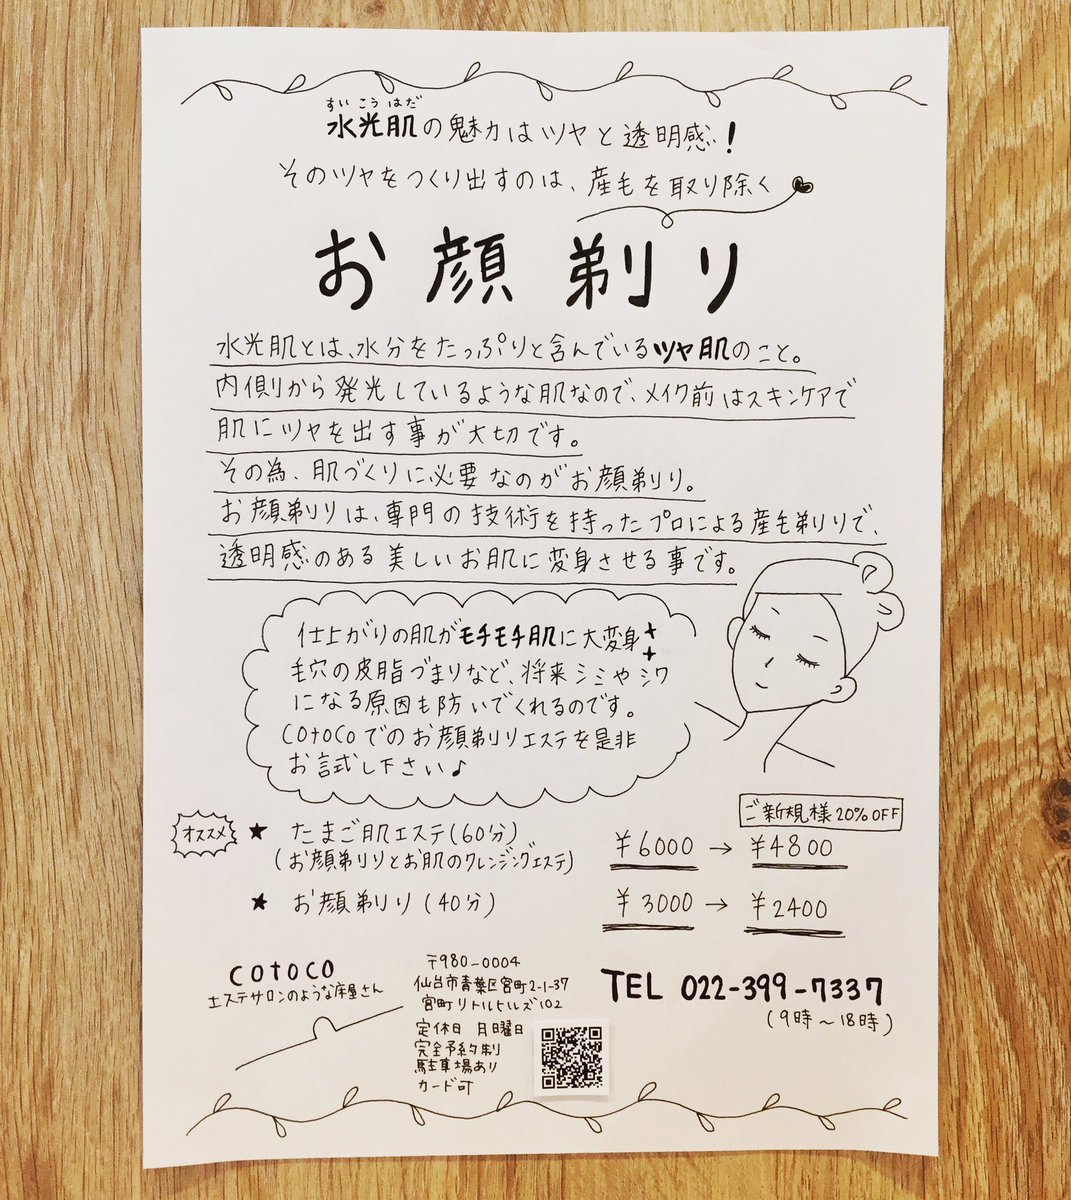 すい こう はだ
水光肌の魅力はツヤと透明感！
そのツヤをつくり出すのは、産毛を取り除く
お顔剃り
水光肌とは、水分をたっぷりと含んでいるツヤ肌のこと。
内側から発光しているような肌なので、メイク前はスキンケアで
肌にツヤを出す事が大切です。
その為、肌づくりに必要なのがお顔剃り。
お顔剃りは、専門の技術を持ったプロによる産毛剃りで、
透明感のある美しいお肌に変身させる事です。
仕上がりの肌がモチモチ肌に大変身
毛穴の皮脂づまりなど、将来シミやシワ
になる原因も防いでくれるのです。
cotocoでのお顔剃りエステを是非
お試し下さい♪
ご新規様20%OFF
オススメ ★ たまご肌エステ(60分) ¥6000 → ¥4800
(お顔剃りとお肌のクレンジングエステ)
★ お顔剃り(40分) ¥3000 → ¥2400
cotoco
エステサロンのような床屋さん
〒980-0004
仙台市青葉区宮町2-1-37
宮町リトルヒルズ102
定休日 月曜日
完全予約制
駐車場あり
カード可
TEL 022-399-7337
(9時～18時)